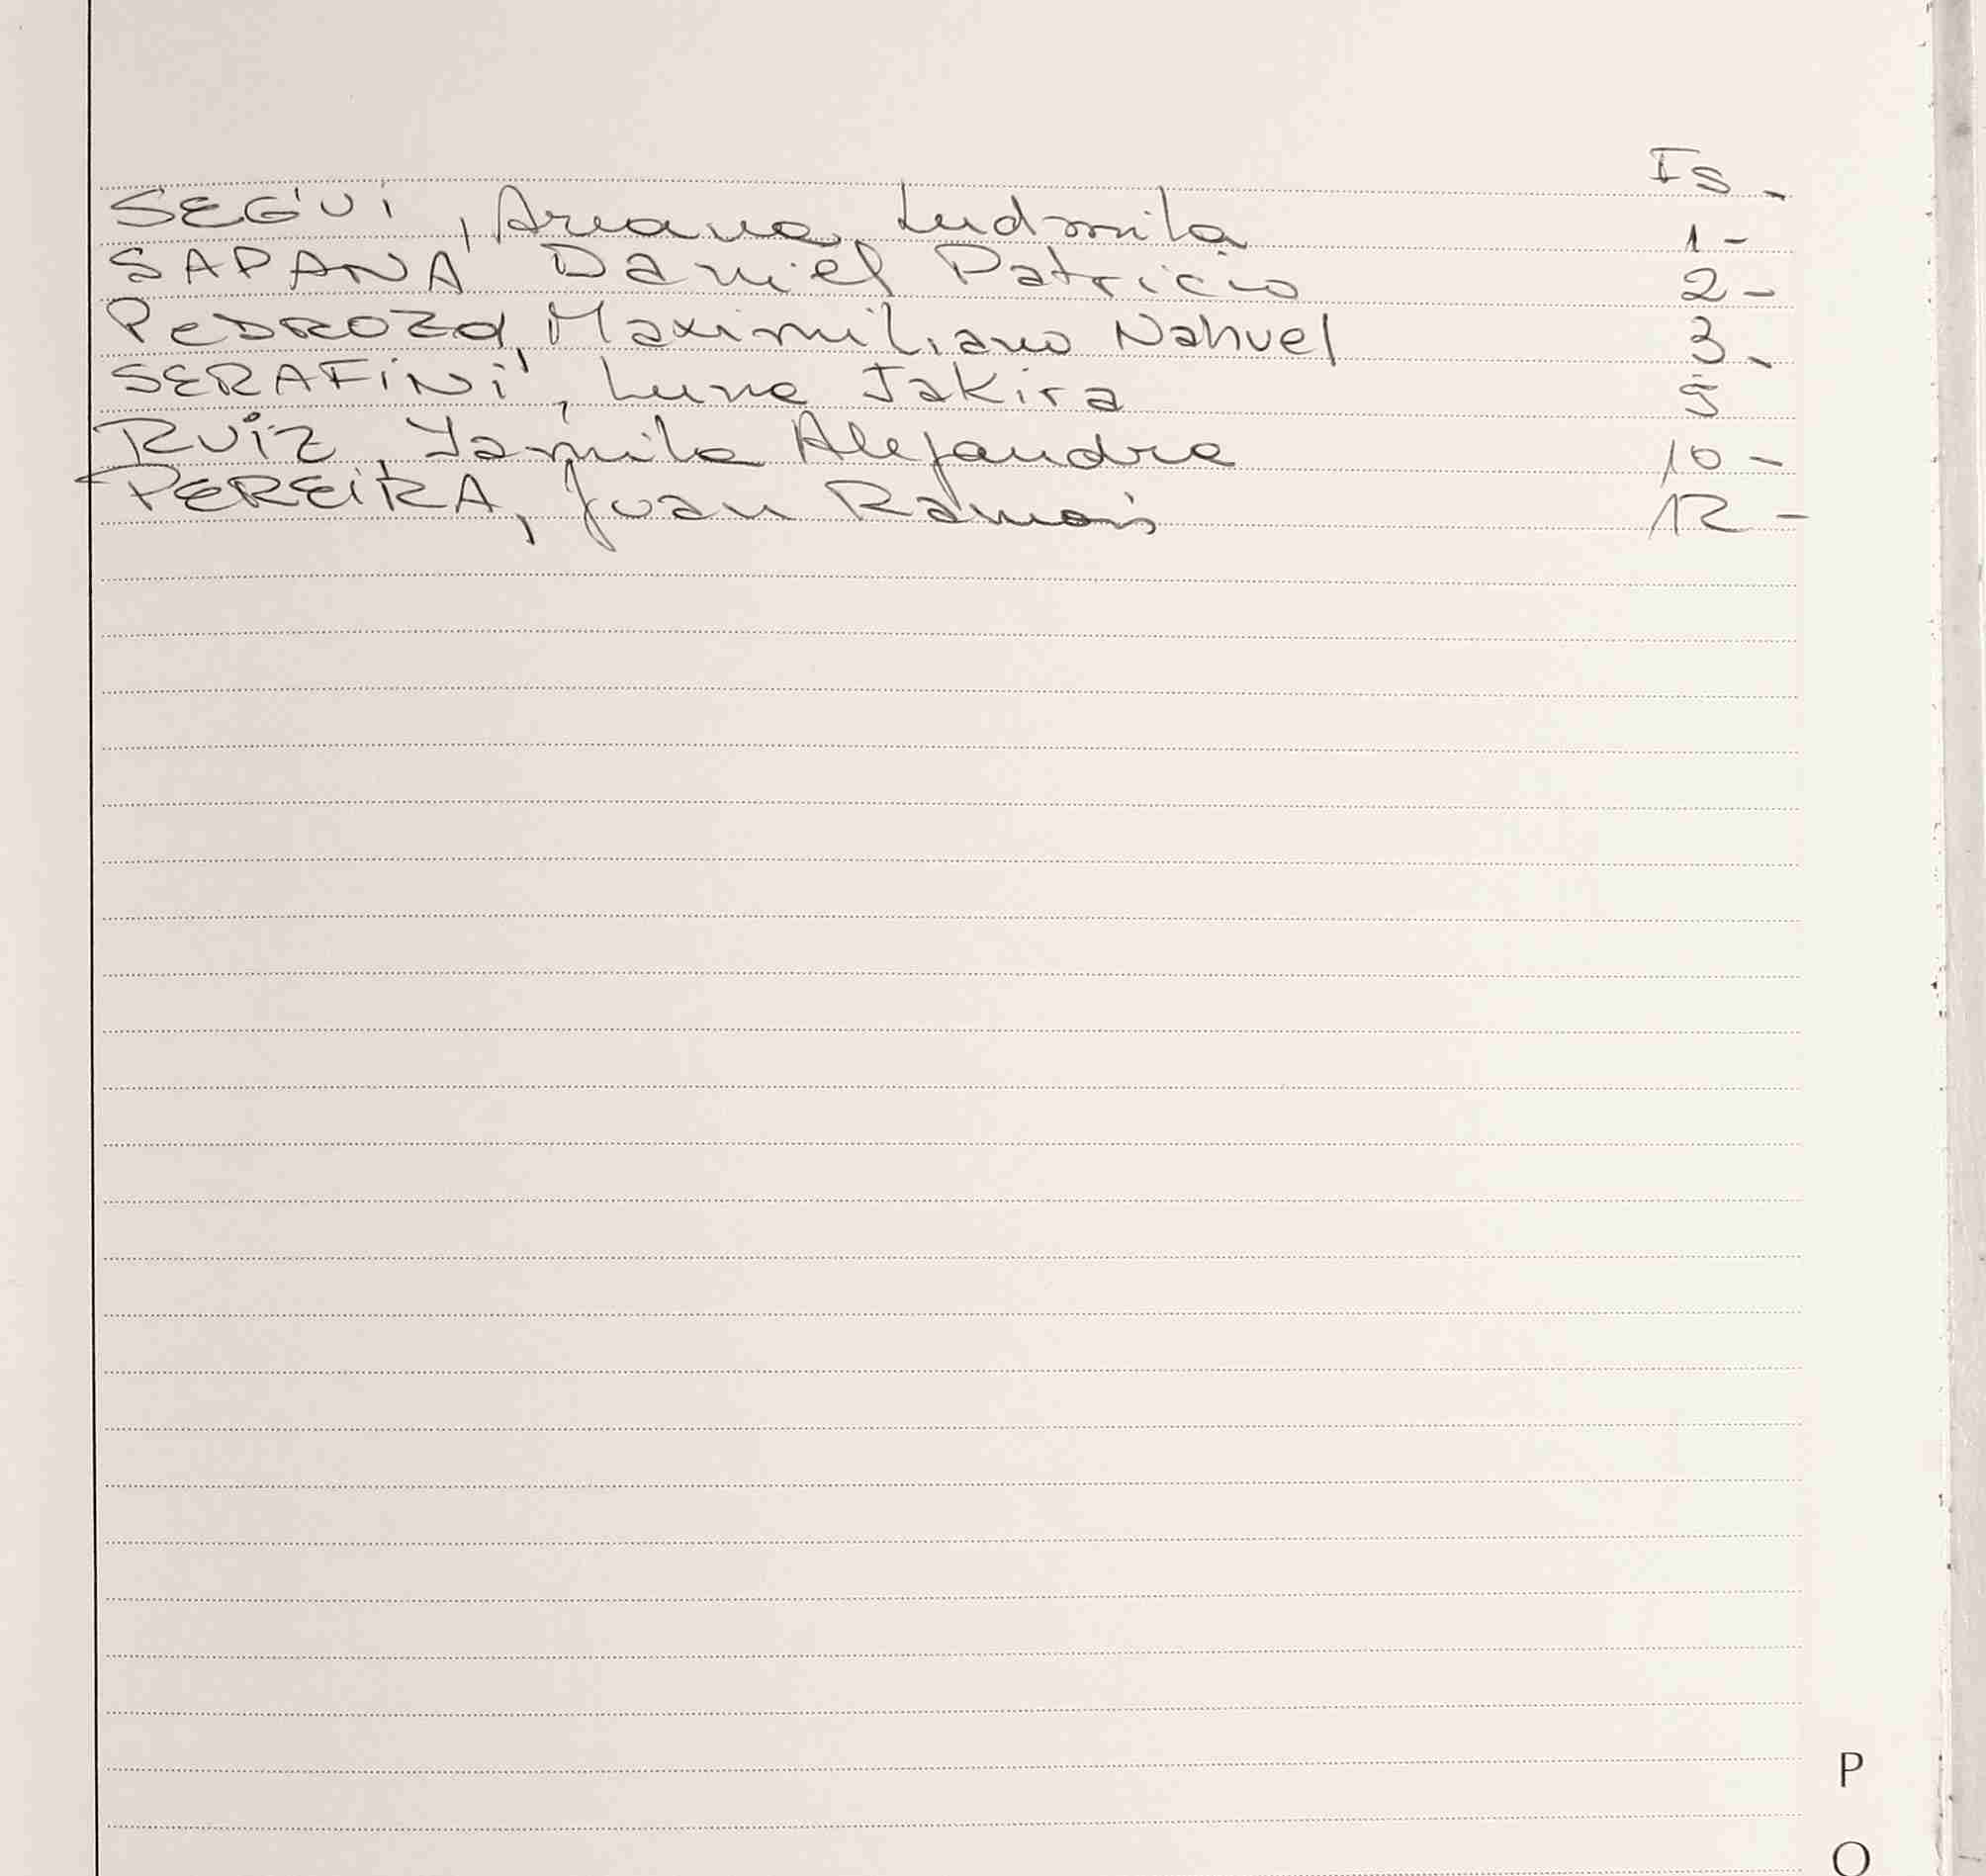 Fs -
SEGUÍ, Ariana Ludmila 1 -
SAPANA Daniel Patricio 2 -
PEDROZA, Maximiliano Nahuel 3 -
SERAFINI, Luna Jakira
RUIZ, Yamila Alejandra 10 -
PEREIRA, Juan Ramón 12 -
P
O